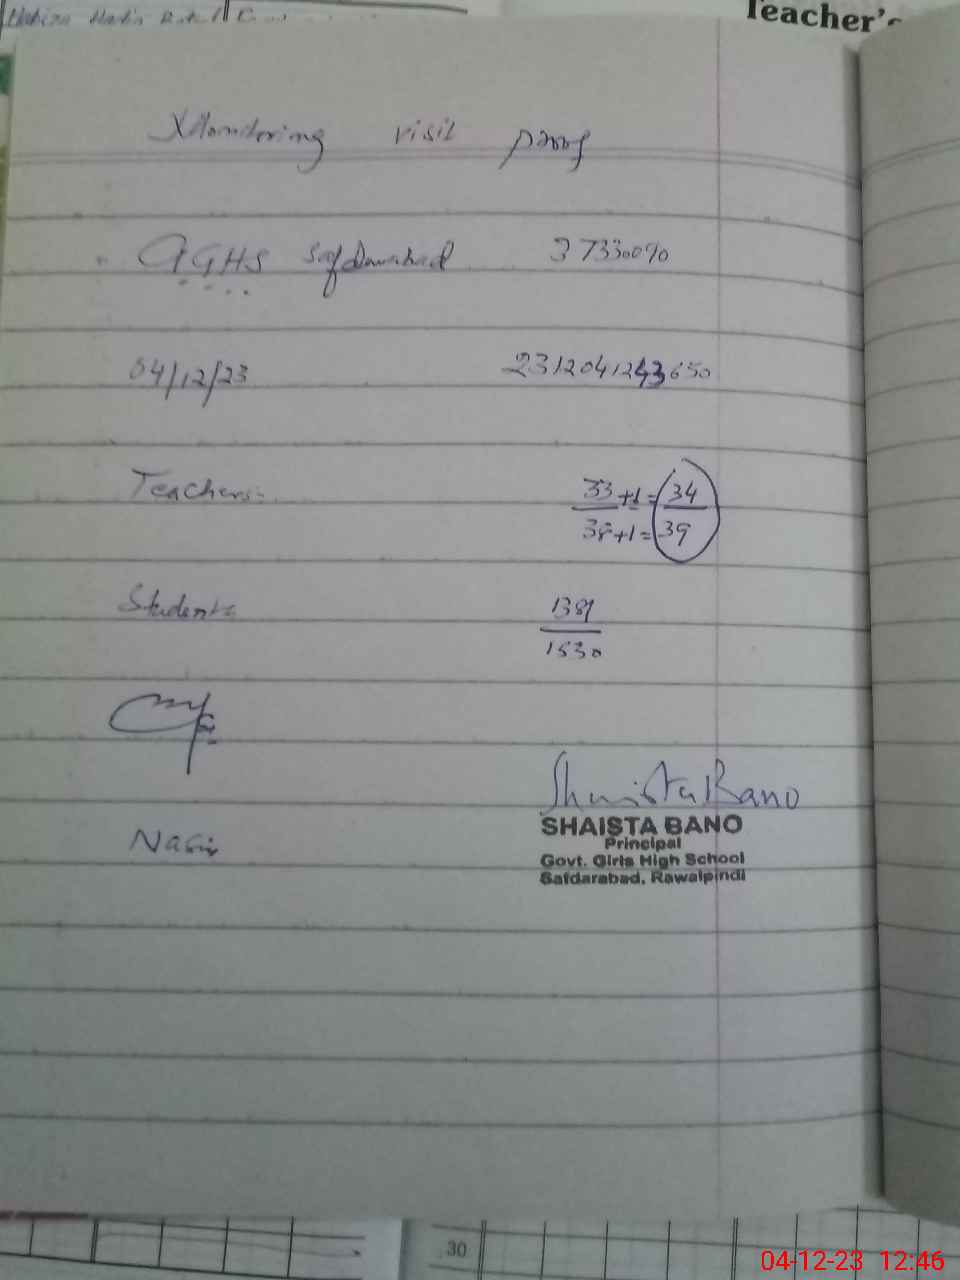 Teacher's
Monitoring visit proof
GGHS Safdarabad 37330090
04/12/23 2312041243650
Teachers:- 33+1=34
38+1=39
Students 1389
1530
Shaista Bano
SHAISTA BANO
Principal
Govt. Girls High School
Safdarabad, Rawalpindi
Nasir
30
04-12-23 12:46